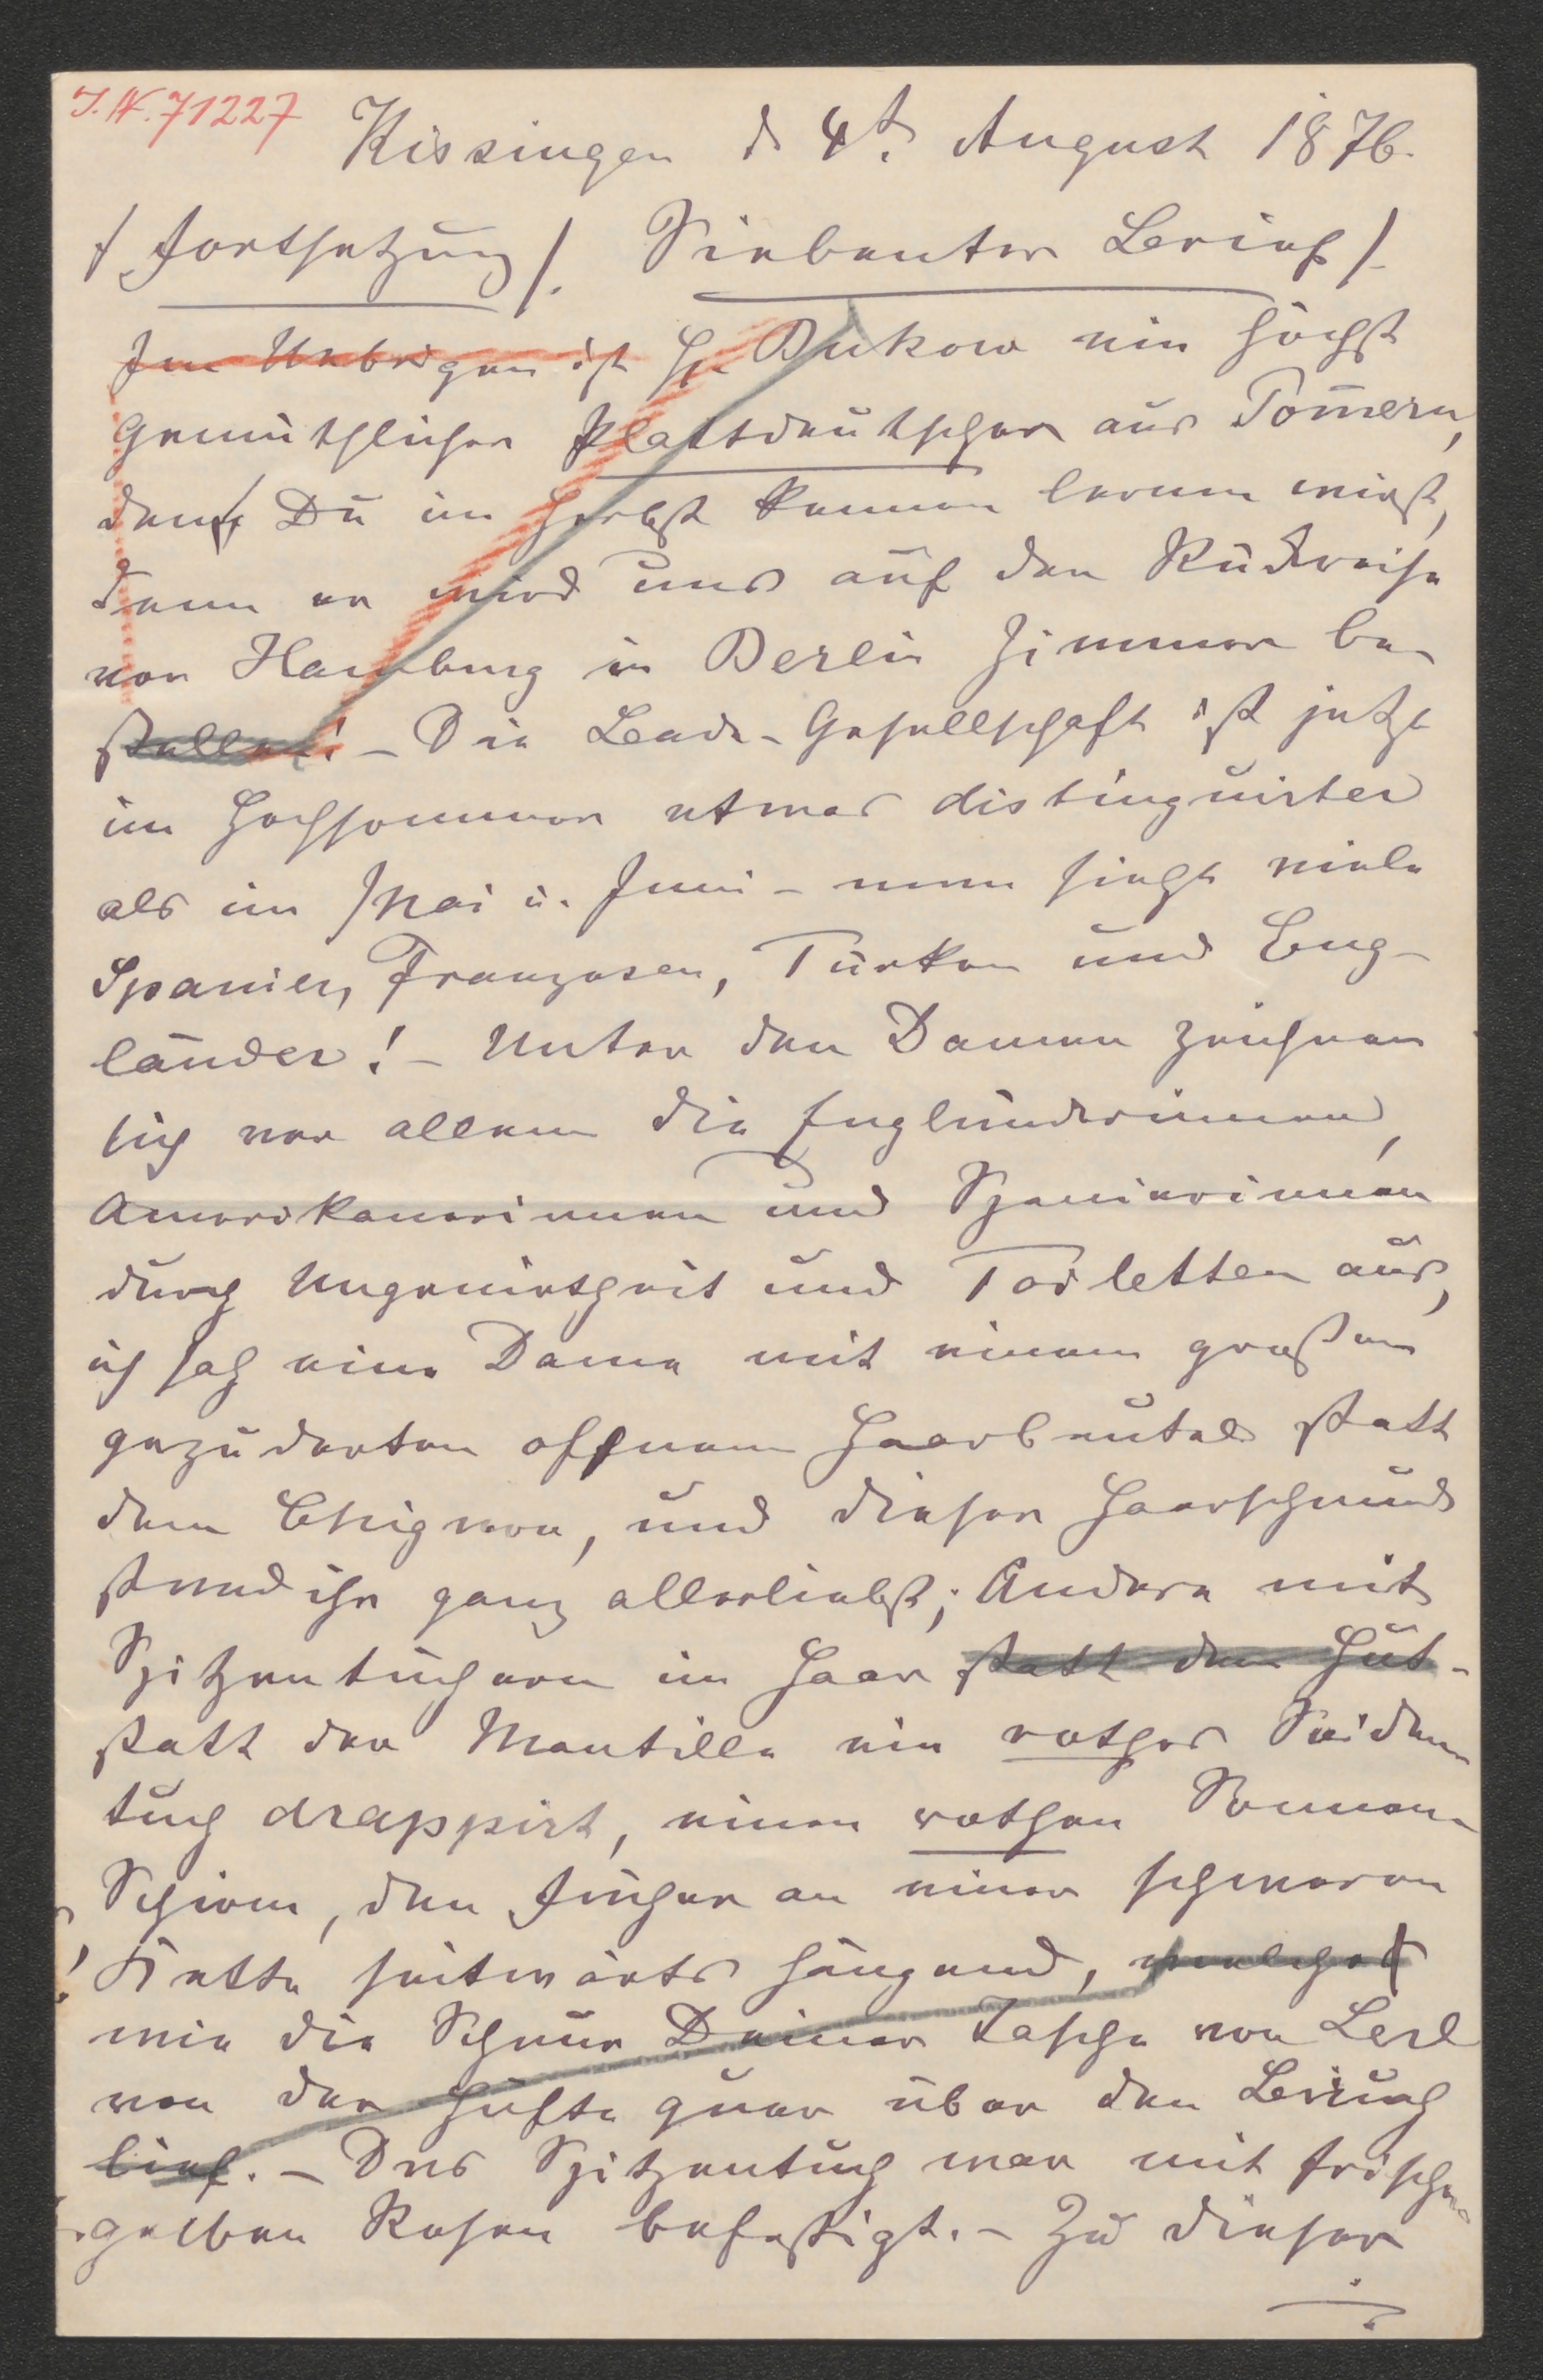 I. N. 71227
Kissingen d 4t. August 1876.
/ Fortsetzung /. Siebenter Brief /.
Im Uebrigen ist H. Bukow ein höchst
gemüthlicher Plattdeutscher aus Pom̄ern,
den Du im Herbst kennen lernen wirst,
denn er wird uns auf der Rückreise
von Hamburg in Berlin Zimmer be-
stellen! – Die Bade-Gesellschaft ist jetzt
im Hochsommer etwas distinguirter
als im Mai u. Juni – man sieht viele
Spanier, Franzosen, Türken und Eng-
länder! – Unter den Damen zeichnen
sich vor allem die Engländerinnen,
Amerikanerinnen und Spanierinnen
durch Ungenirtheit und Toiletten aus,
ich sah eine Dame mit einem großen
gepuderten offnem Haarbeutel statt
dem Chignon, und dieser Haarschmuck
stand ihr ganz allerliebst; Andere mit
Spitzentüchern im Haar statt dem Hut –
statt der Mantille ein rothes Seiden-
tuch drappirt, einen rothen Sonnen-
Schirm, den Fächer an einer schweren
Kette seitwärts hängend, welche
wie die Schnur Deiner Tasche von Berl
von der Hüfte quer über den Bauch
lief. – Das Spitzentuch war mit frischen
gelben Rosen befestigt. – Zu dieser